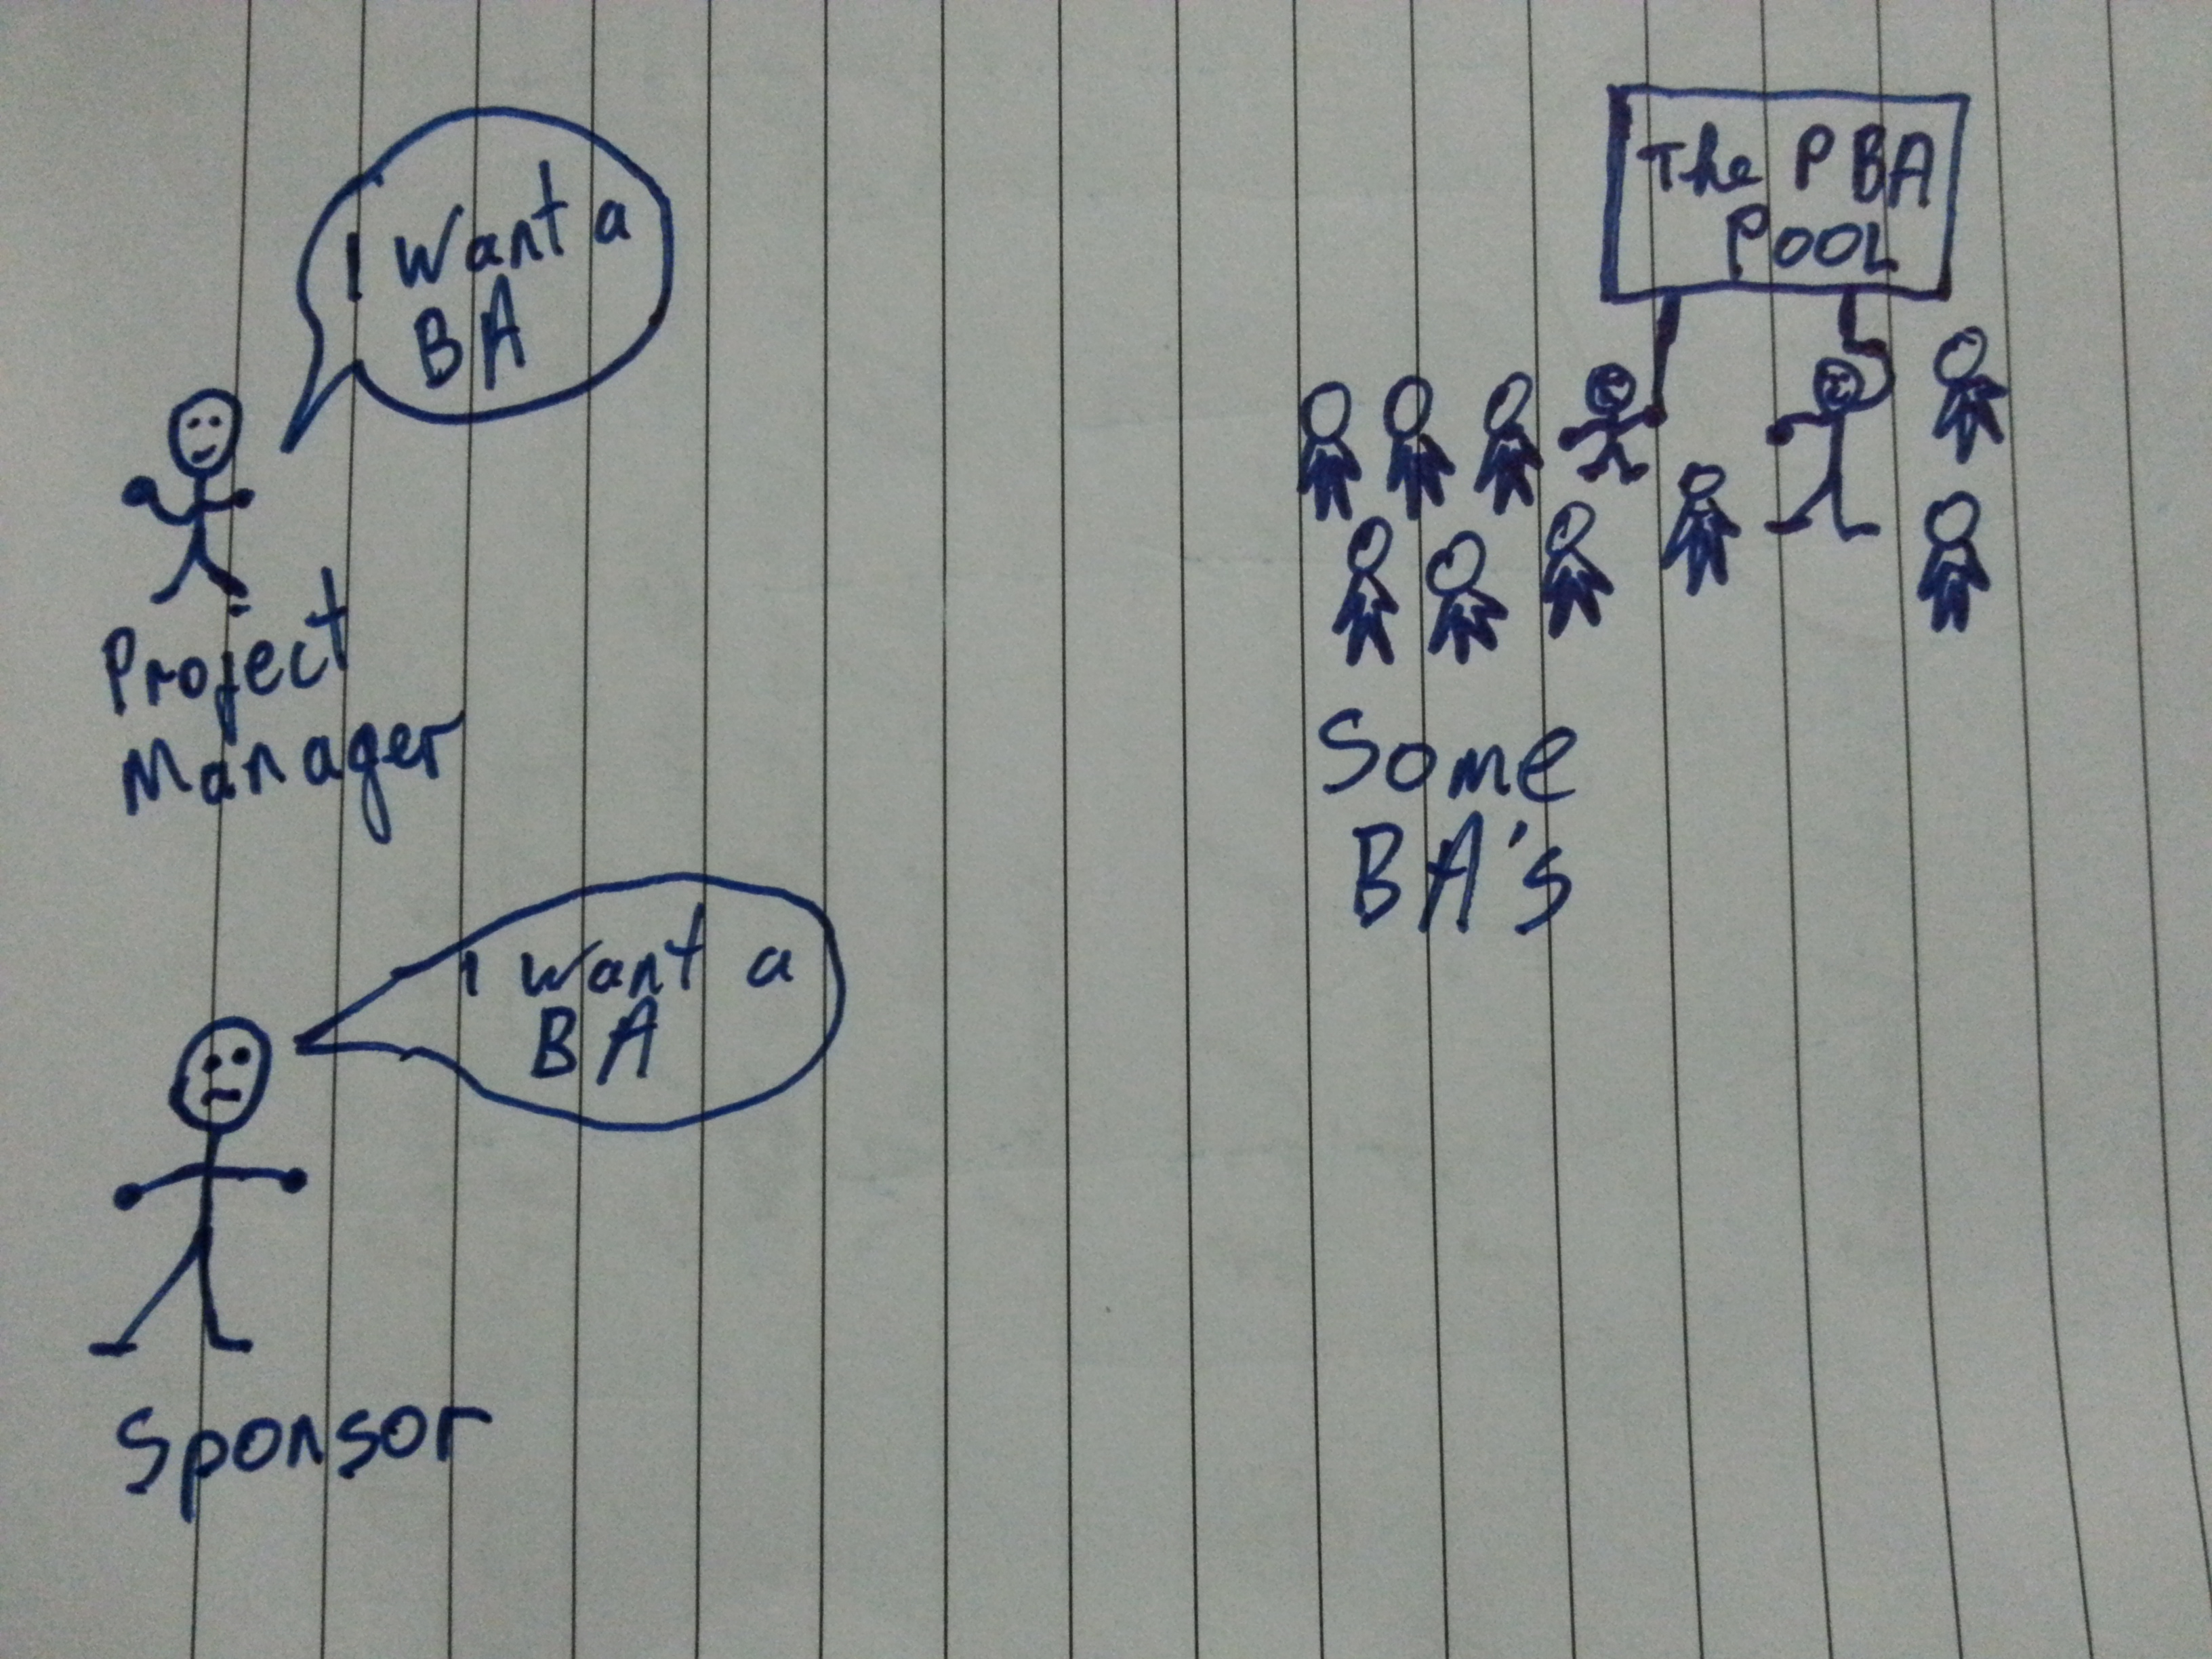 I want a
BA
Project
Manager
I want a
BA
Sponsor
The PBA
POOL
Some
BA's